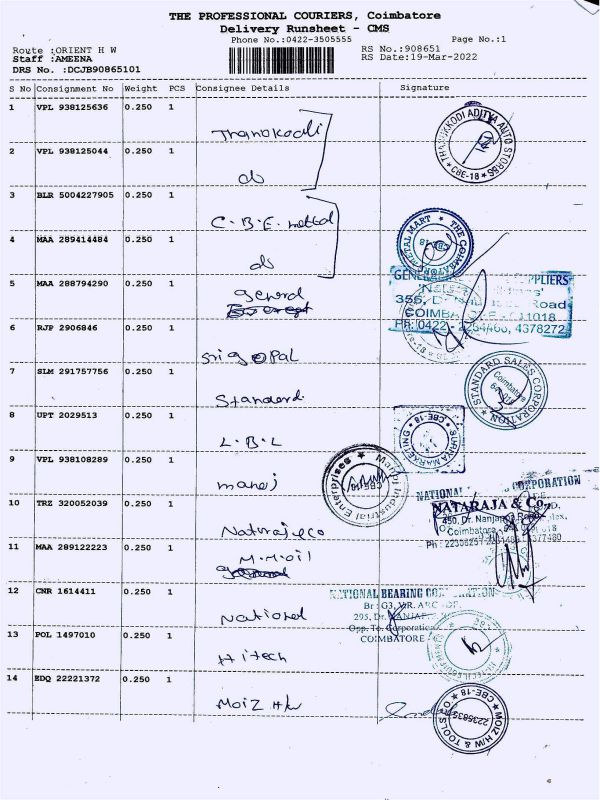 THE PROFESSIONAL COURIERS, Coimbatore
Delivery Runsheet - CMS
Phone No.:0422-3505555
Page No.:1
Route :ORIENT H W
RS No.:908651
Staff :AMEENA
RS Date:19-Mar-2022
DRS No. :DCJB90865101
S No Consignment No Weight PCS Consignee Details Signature
1 VPL 938125636 0.250 1
Thanokodi
THANUKKODI ADITYA AUTO STORES
CBE-18
2 VPL 938125044 0.250 1
do
3 BLR 5004227905 0.250 1
C.B.E. metal
THE COIMBATORE METAL MART
CBE-18
4 MAA 289414484 0.250 1
do
5 MAA 288794290 0.250 1
General
355, Road
PH: 0422 - 2264466, 4378272
6 RJP 2906846 0.250 1
Sri gOPAL
7 SLM 291757756 0.250 1
Standard
STANDARD SALES CORPORATION
Coimbatore
8 UPT 2029513 0.250 1
L.B.L
SURYA MARKETING
CBE-18
9 VPL 938108289 0.250 1
manoj
Manoj Industrial Enterprises
10 TRZ 320052039 0.250 1
Nataraj & co
NATIONAL CORPORATION
NATARAJA & Co.,
450, Dr. Nanjappa
Coimbatore
11 MAA 289122223 0.250 1
M.M.oil
12 CNR 1614411 0.250 1
National
NATIONAL BEARING CORPORATION
Br : G3, V.R. ARC
295, Dr. NANJAPPA
Opp. To Corporation
COIMBATORE
13 POL 1497010 0.250 1
Hitech
14 EDQ 22221372 0.250 1
MOIZ HW
MOIZ H/W & TOOLS
CBE-18